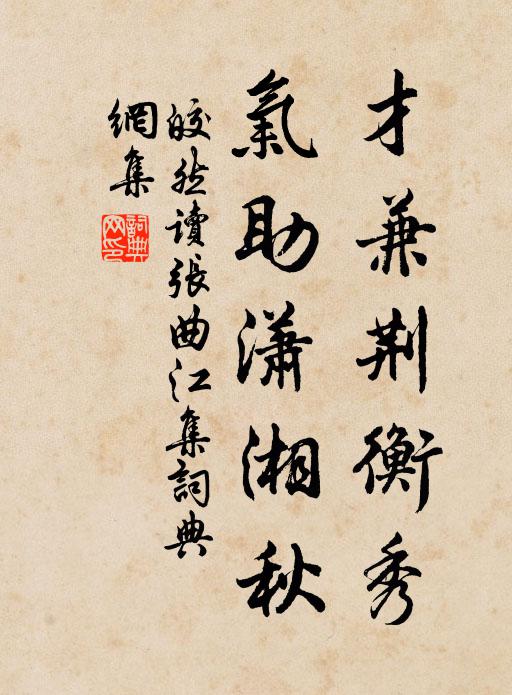 才兼荆衡秀
氣助瀟湘秋
皎然讀張曲江集詞典
網集
詞典网印